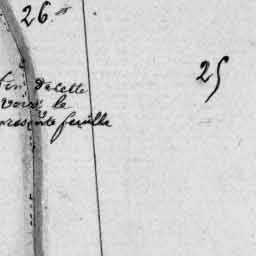 26.
25
fin de cette
voir la
presente feuille